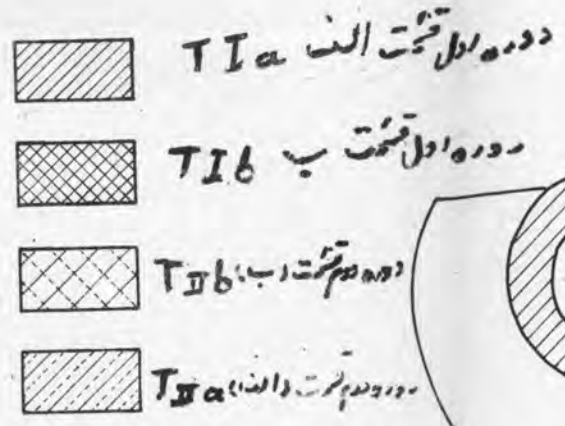 دوره اول قسمت الف TIa
دوره اول قسمت ب TIb
دوره دوم قسمت (ب) TIIb
دوره دوم قسمت (الف) TIIa